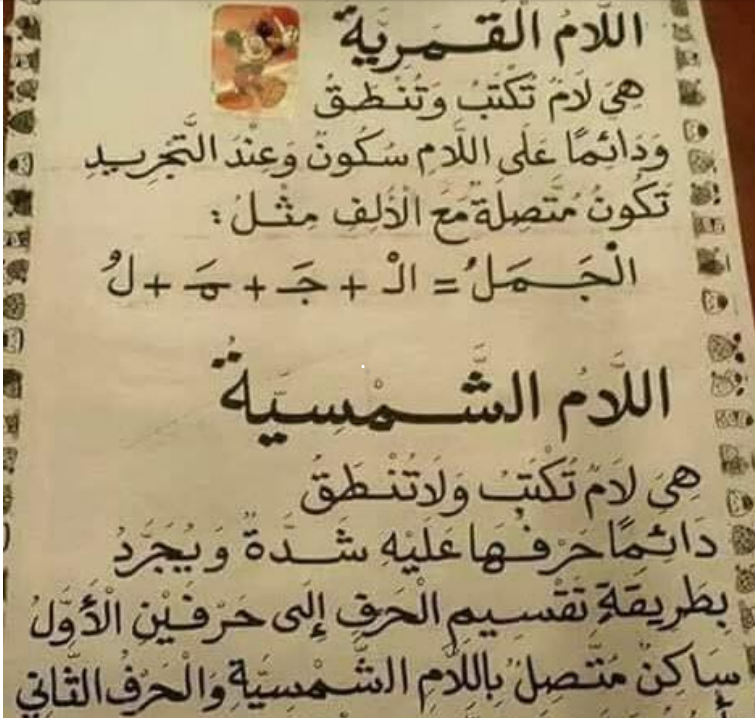 اللَّامُ الْقَمَرِيَّة
هِيَ لَامٌ تُكْتَبُ وَتُنْطَقُ
وَدَائِمًا عَلَى اللَّامِ سُكُونٌ وَعِنْدَ التَّجْرِيدِ
تَكُونُ مُتَّصِلَةً مَعَ الْأَلِفِ مِثْلُ :
الْجَمَلُ = الْـ + جَـ + مَـ + لُ
اللَّامُ الشَّمْسِيَّةُ
هِيَ لَامٌ تُكْتَبُ وَلَا تُنْطَقُ
دَائِمًا حَرْفُهَا عَلَيْهِ شَدَّةٌ وَيُجَرَّدُ
بِطَرِيقَةِ تَقْسِيمِ الْحَرْفِ إِلَى حَرْفَيْنِ الْأَوَّلُ
سَاكِنٌ مُتَّصِلٌ بِاللَّامِ الشَّمْسِيَّةِ وَالْحَرْفُ الثَّانِي